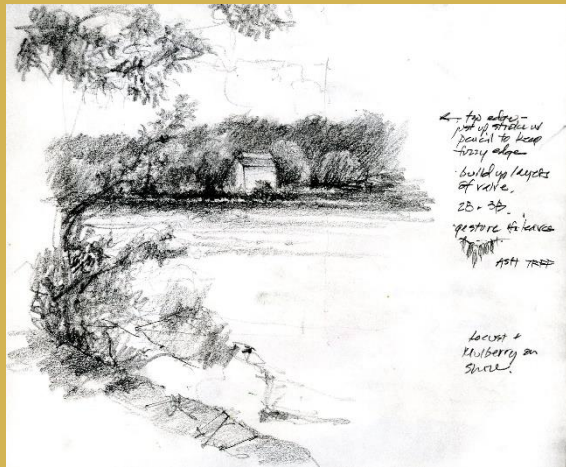 ← top edge -
just up stroke w/
pencil to keep
fuzzy edge
- build up layers
of value.
2B + 3B.
gesture of leaves
ASH TREE
Locust +
Mulberry on
Shore.